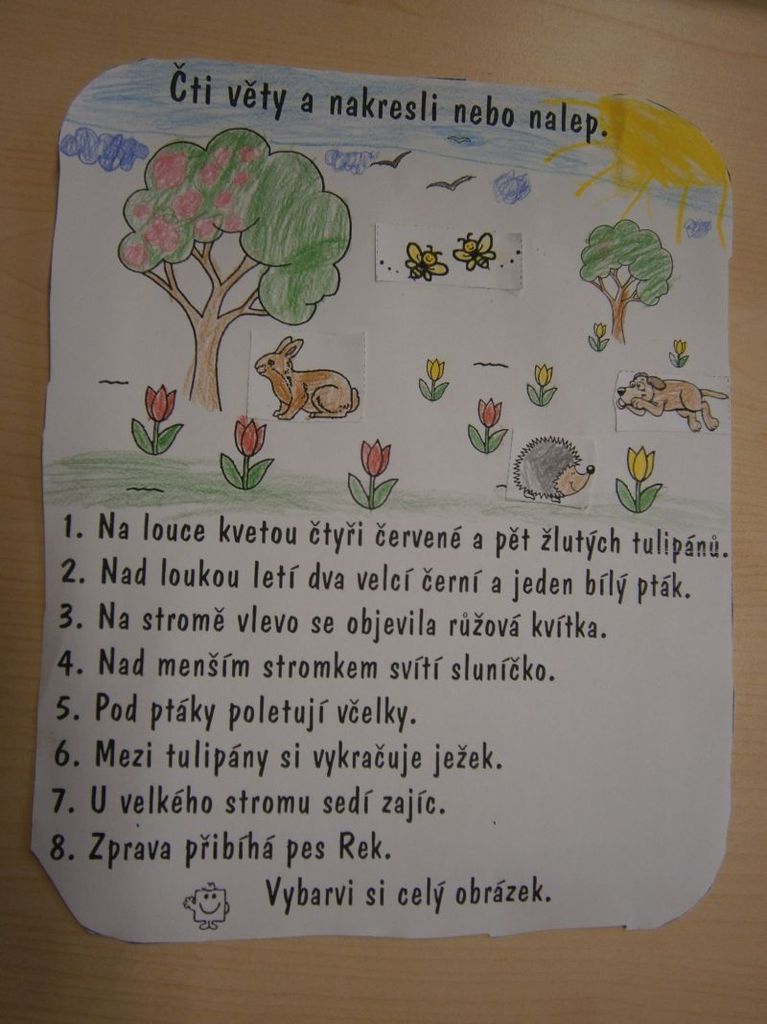 Čti věty a nakresli nebo nalep.
1. Na louce kvetou čtyři červené a pět žlutých tulipánů.
2. Nad loukou letí dva velcí černí a jeden bílý pták.
3. Na stromě vlevo se objevila růžová kvítka.
4. Nad menším stromkem svítí sluníčko.
5. Pod ptáky poletují včelky.
6. Mezi tulipány si vykračuje ježek.
7. U velkého stromu sedí zajíc.
8. Zprava přibíhá pes Rek.
Vybarvi si celý obrázek.